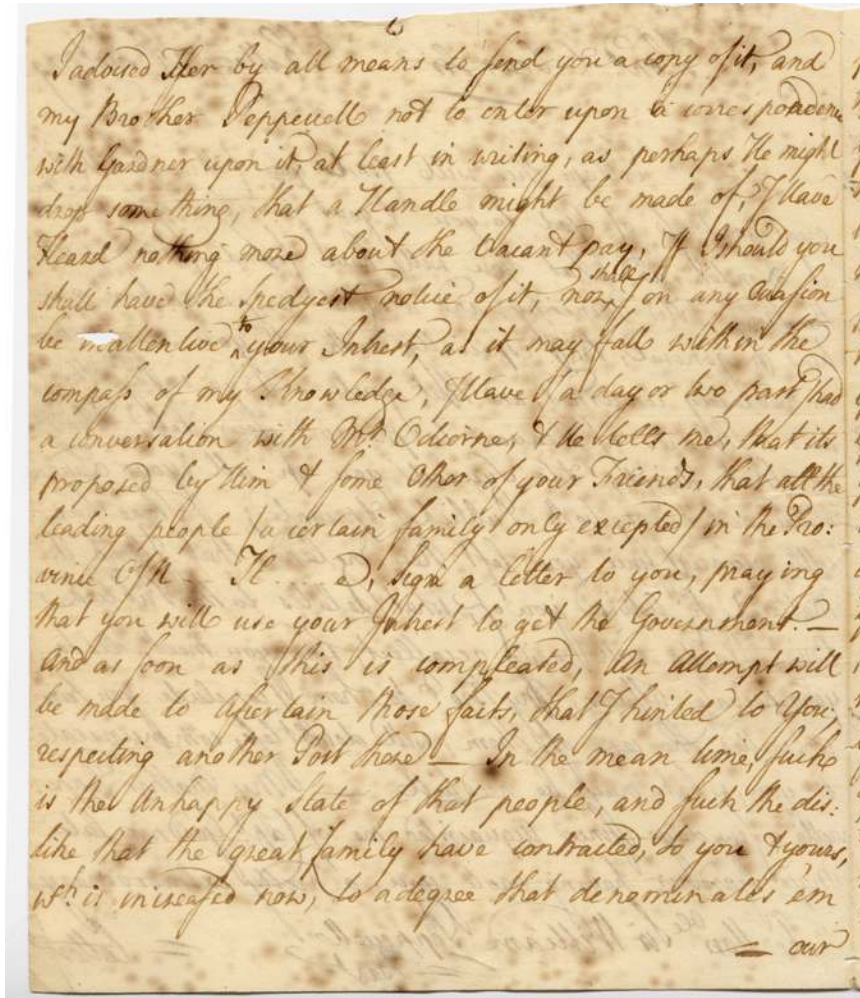 6
I advised Her by all means to send you a copy of it, and
my Brother Pepperrell not to enter upon a correspondence
with Gardner upon it, at least in writing, as perhaps He might
drop some thing, that a Handle might be made of, I Have
Heard nothing more about the Vacant pay, If I should you
shall have the Spedyest notice of it, nor, shall I on any Occasion
be inattentive to your Intrest, as it may fall within the
compass of my Knowledge, I Have /a day or two past/ had
a conversation with Mr. Odiorne, & He tells me, that its
proposed by Him & some Other of your Friends, that all the
leading people /a certain family only excepted/ in the Pro:
vince Of N H e, Sign a letter to you, praying
that you will use your Intrest to get the Government. —
And as soon as this is compleated, An Attempt will
be made to Ascertain those facts, that I hinted to You,
respecting another Post there — In the mean time, such
is the Unhappy State of that people, and such the dis:
like that the great family have contracted, to you & yours,
wch. is increased now, to a degree that denominates 'em
= our